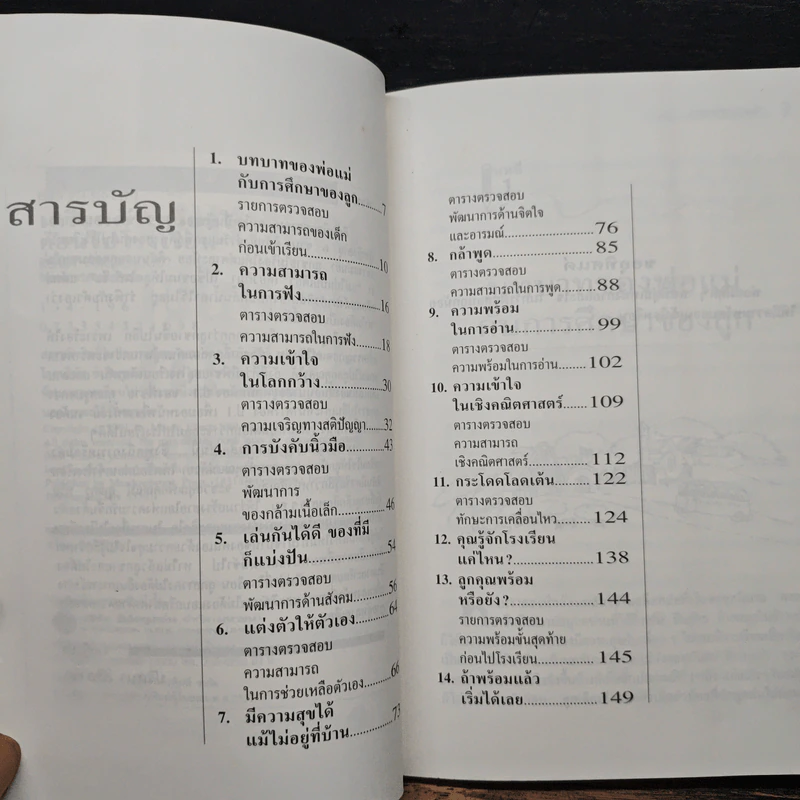 สารบัญ
1. บทบาทของพ่อแม่
กับการศึกษาของลูก..........7
รายการตรวจสอบ
ความสามารถของเด็ก
ก่อนเข้าเรียน..................10
2. ความสามารถ
ในการฟัง......................16
ตารางตรวจสอบ
ความสามารถในการฟัง.......18
3. ความเข้าใจ
ในโลกกว้าง..................30
ตารางตรวจสอบ
ความเจริญทางสติปัญญา....32
4. การบังคับนิ้วมือ.............43
ตารางตรวจสอบ
พัฒนาการ
ของกล้ามเนื้อเล็ก............46
5. เล่นกันได้ดี ของที่มี
ก็แบ่งปัน......................54
ตารางตรวจสอบ
พัฒนาการด้านสังคม.........56
6. แต่งตัวให้ตัวเอง...........64
ตารางตรวจสอบ
ความสามารถ
ในการช่วยเหลือตัวเอง.......66
7. มีความสุขได้
แม้ไม่อยู่ที่บ้าน.............73
ตารางตรวจสอบ
พัฒนาการด้านจิตใจ
และอารมณ์....................76
8. กล้าพูด.......................85
ตารางตรวจสอบ
ความสามารถในการพูด.......88
9. ความพร้อม
ในการอ่าน...................99
ตารางตรวจสอบ
ความพร้อมในการอ่าน........102
10. ความเข้าใจ
ในเชิงคณิตศาสตร์.......109
ตารางตรวจสอบ
ความสามารถ
เชิงคณิตศาสตร์..............112
11. กระโดดโลดเต้น..........122
ตารางตรวจสอบ
ทักษะการเคลื่อนไหว.........124
12. คุณรู้จักโรงเรียน
แค่ไหน?....................138
13. ลูกคุณพร้อม
หรือยัง?....................144
รายการตรวจสอบ
ความพร้อมขั้นสุดท้าย
ก่อนไปโรงเรียน..............145
14. ถ้าพร้อมแล้ว
เริ่มได้เลย...................149